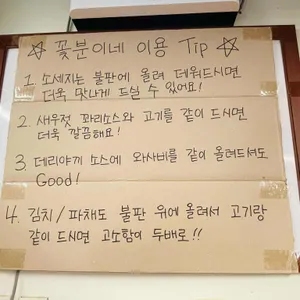 ☆ 꽃분이네 이용 Tip ☆
1. 소세지는 불판에 올려 데워드시면
더욱 맛나게 드실 수 있어요!
2. 새우젓 꽈리소스와 고기를 같이 드시면
더욱 깔끔해요!
3. 데리야끼 소스에 와사비를 같이 올려드셔도
Good!
4. 김치/파채도 불판 위에 올려서 고기랑
같이 드시면 고소함이 두배로!!